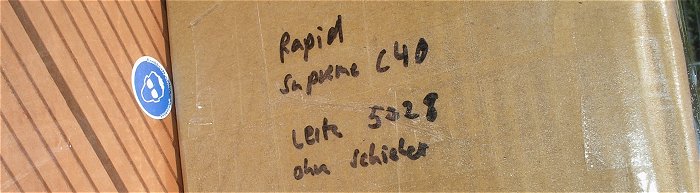 Rapid
Supreme C40
Leitz 5028
ohne Schieber